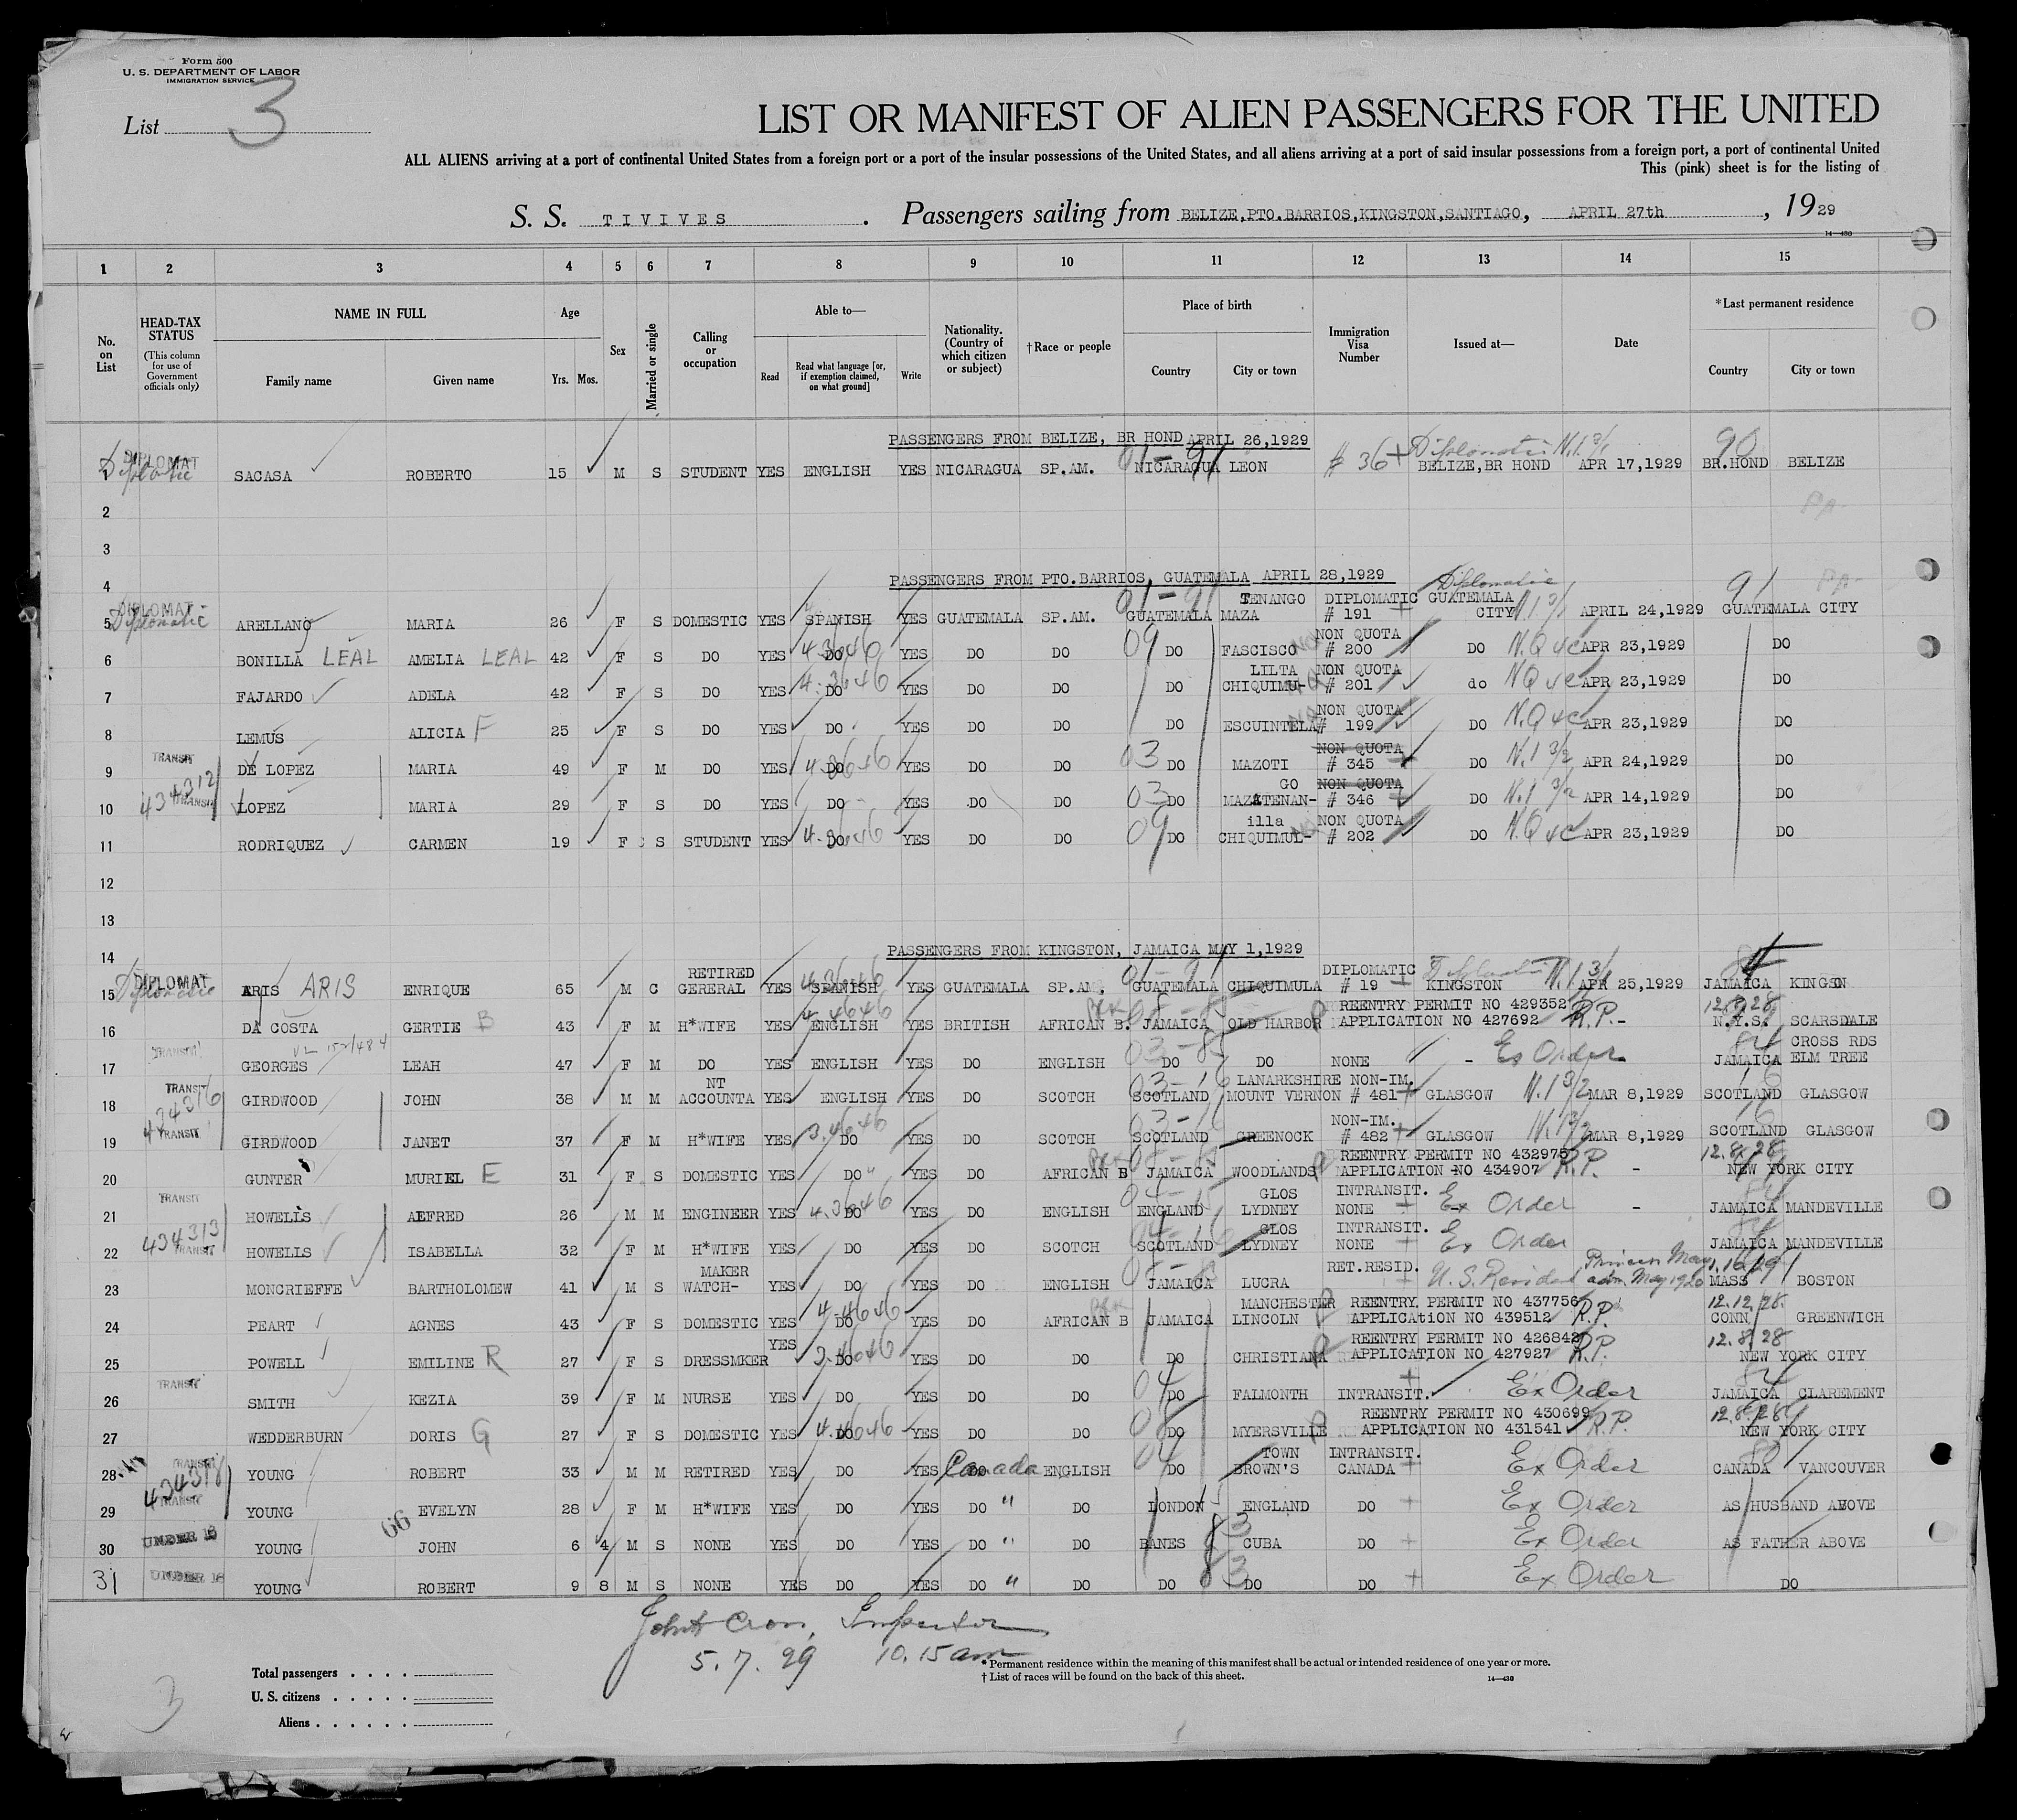 Form 500
U. S. DEPARTMENT OF LABOR
IMMIGRATION SERVICE
List 3
LIST OR MANIFEST OF ALIEN PASSENGERS FOR THE UNITED
ALL ALIENS arriving at a port of continental United States from a foreign port or a port of the insular possessions of the United States, and all aliens arriving at a port of said insular possessions from a foreign port, a port of continental United
This (pink) sheet is for the listing of
S. S. TIVIVES. Passengers sailing from BELIZE,PTO.BARRIOS,KINGSTON,SANTIAGO, APRIL 27th, 1929
14—430
1 2 3 4 5 6 7 8 9 10 11 12 13 14 15
No. on List
HEAD-TAX STATUS (This column for use of Government officials only)
NAME IN FULL Family name Given name
Age Yrs. Mos.
Sex
Married or single
Calling or occupation
Able to— Read Read what language [or, if exemption claimed, on what ground] Write
Nationality. (Country of which citizen or subject)
†Race or people
Place of birth Country City or town
Immigration Visa Number
Issued at—
Date
*Last permanent residence Country City or town
PASSENGERS FROM BELIZE, BR HOND APRIL 26,1929
DIPLOMAT Diplomatic SACASA ROBERTO 15 M S STUDENT YES ENGLISH YES NICARAGUA SP.AM. 01-91 NICARAGUA LEON # 36 Diplomatic N.1 3/1 BELIZE,BR HOND APR 17,1929 90 BR.HOND BELIZE
2
3
4
PASSENGERS FROM PTO.BARRIOS, GUATEMALA APRIL 28,1929
5 DIPLOMAT Diplomatic ARELLANO MARIA 26 F S DOMESTIC YES SPANISH YES GUATEMALA SP.AM. 01-91 GUATEMALA MAZA TENANGO DIPLOMATIC # 191 Diplomatic GUATEMALA CITY N 1 3/1 APRIL 24,1929 91 GUATEMALA CITY
6 BONILLA LEAL AMELIA LEAL 42 F S DO YES DO YES DO DO 09 DO FASCISCO NON QUOTA # 200 DO N.Q 4C APR 23,1929 DO
7 FAJARDO ADELA 42 F S DO YES DO YES DO DO DO CHIQUIMU- LILTA NON QUOTA # 201 do NQ 4C APR 23,1929 DO
8 LEMUS ALICIA F 25 F S DO YES DO YES DO DO DO ESCUINTELA NON QUOTA # 199 DO N.Q 4C APR 23,1929 DO
9 TRANSIT DE LOPEZ MARIA 49 F M DO YES DO YES DO DO 03 DO MAZOTI NON QUOTA # 345 DO N.1 3/2 APR 24,1929 DO
434312
10 TRANSIT LOPEZ MARIA 29 F S DO YES DO YES DO DO 03 DO MAZATENAN- GO NON QUOTA # 346 DO N.1 3/2 APR 14,1929 DO
11 RODRIQUEZ CARMEN 19 F S STUDENT YES DO YES DO DO 09 DO CHIQUIMUL- illa NON QUOTA # 202 DO N.Q 4C APR 23,1929 DO
12
13
14
PASSENGERS FROM KINGSTON, JAMAICA MAY 1,1929
15 DIPLOMAT Diplomatic ARIS ARIS ENRIQUE 65 M C RETIRED GERERAL YES SPANISH YES GUATEMALA SP.AM. 01-91 GUATEMALA CHIQUIMULA DIPLOMATIC # 19 KINGSTON N.1 3/1 APR 25,1929 JAMAICA KINGSON
16 DA COSTA GERTIE B 43 F M H*WIFE YES ENGLISH YES BRITISH AFRICAN B. JAMAICA OLD HARBOR REENTRY PERMIT NO 429352 APPLICATION NO 427692 R.P.- 12.8.28 N.Y.S. SCARSDALE
17 TRANSIT GEORGES LEAH 47 F M DO YES ENGLISH YES DO ENGLISH DO DO NONE - Ex Order JAMAICA CROSS RDS ELM TREE
18 TRANSIT GIRDWOOD JOHN 38 M M ACCOUNTA NT YES ENGLISH YES DO SCOTCH 03-16 SCOTLAND LANARKSHIRE MOUNT VERNON NON-IM. # 481 GLASGOW N.1 3/2 MAR 8,1929 16 SCOTLAND GLASGOW
434316
19 TRANSIT GIRDWOOD JANET 37 F M H*WIFE YES DO YES DO SCOTCH 03-16 SCOTLAND GREENOCK NON-IM. # 482 GLASGOW N.1 3/2 MAR 8,1929 16 SCOTLAND GLASGOW
20 GUNTER MURIEL E 31 F S DOMESTIC YES DO YES DO AFRICAN B JAMAICA WOODLANDS REENTRY PERMIT NO 432975 APPLICATION NO 434907 R.P. - 12.8.28 NEW YORK CITY
21 TRANSIT HOWELLS ALFRED 26 M M ENGINEER YES DO YES DO ENGLISH ENGLAND GLOS LYDNEY INTRANSIT. NONE Ex Order - JAMAICA MANDEVILLE
434313
22 TRANSIT HOWELLS ISABELLA 32 F M H*WIFE YES DO YES DO SCOTCH SCOTLAND GLOS LYDNEY INTRANSIT. NONE Ex Order JAMAICA MANDEVILLE
23 MONCRIEFFE BARTHOLOMEW 41 M S WATCH- MAKER YES DO YES DO ENGLISH JAMAICA LUCRA RET.RESID. U.S. Resident, Princess May adm. May 1920 MASS BOSTON
24 PEART AGNES 43 F S DOMESTIC YES DO YES DO AFRICAN B JAMAICA MANCHESTER LINCOLN REENTRY PERMIT NO 437756 APPLICATION NO 439512 R.P. 12.12.28. CONN GREENWICH
25 POWELL EMILINE R 27 F S DRESSMKER YES DO YES DO DO DO CHRISTIANA REENTRY PERMIT NO 426842 APPLICATION NO 427927 R.P. 12.8.28 NEW YORK CITY
26 TRANSIT SMITH KEZIA 39 F M NURSE YES DO YES DO DO 04 DO FALMONTH INTRANSIT. Ex Order JAMAICA CLAREMENT
27 WEDDERBURN DORIS G 27 F S DOMESTIC YES DO YES DO DO DO MYERSVILLE REENTRY PERMIT NO 430699 APPLICATION NO 431541 R.P. 12.8.28 NEW YORK CITY
28 TRANSIT YOUNG ROBERT 33 M M RETIRED YES DO YES DO Canada ENGLISH 04 DO BROWN'S TOWN INTRANSIT. CANADA Ex Order CANADA VANCOUVER
434318
29 TRANSIT YOUNG EVELYN 28 F M H*WIFE YES DO YES DO " DO LONDON ENGLAND DO Ex Order AS HUSBAND ABOVE
30 UNDER 16 YOUNG 66 JOHN 6 4 M S NONE YES DO YES DO " DO BANES CUBA 83 DO Ex Order AS FATHER ABOVE
31 UNDER 16 YOUNG ROBERT 9 8 M S NONE YES DO YES DO " DO DO DO 83 DO Ex Order DO
Inspector
5.7.29 10.15 am
Total passengers . . . .
U. S. citizens . . . . .
Aliens . . . . . .
3
* Permanent residence within the meaning of this manifest shall be actual or intended residence of one year or more.
† List of races will be found on the back of this sheet.
14—430